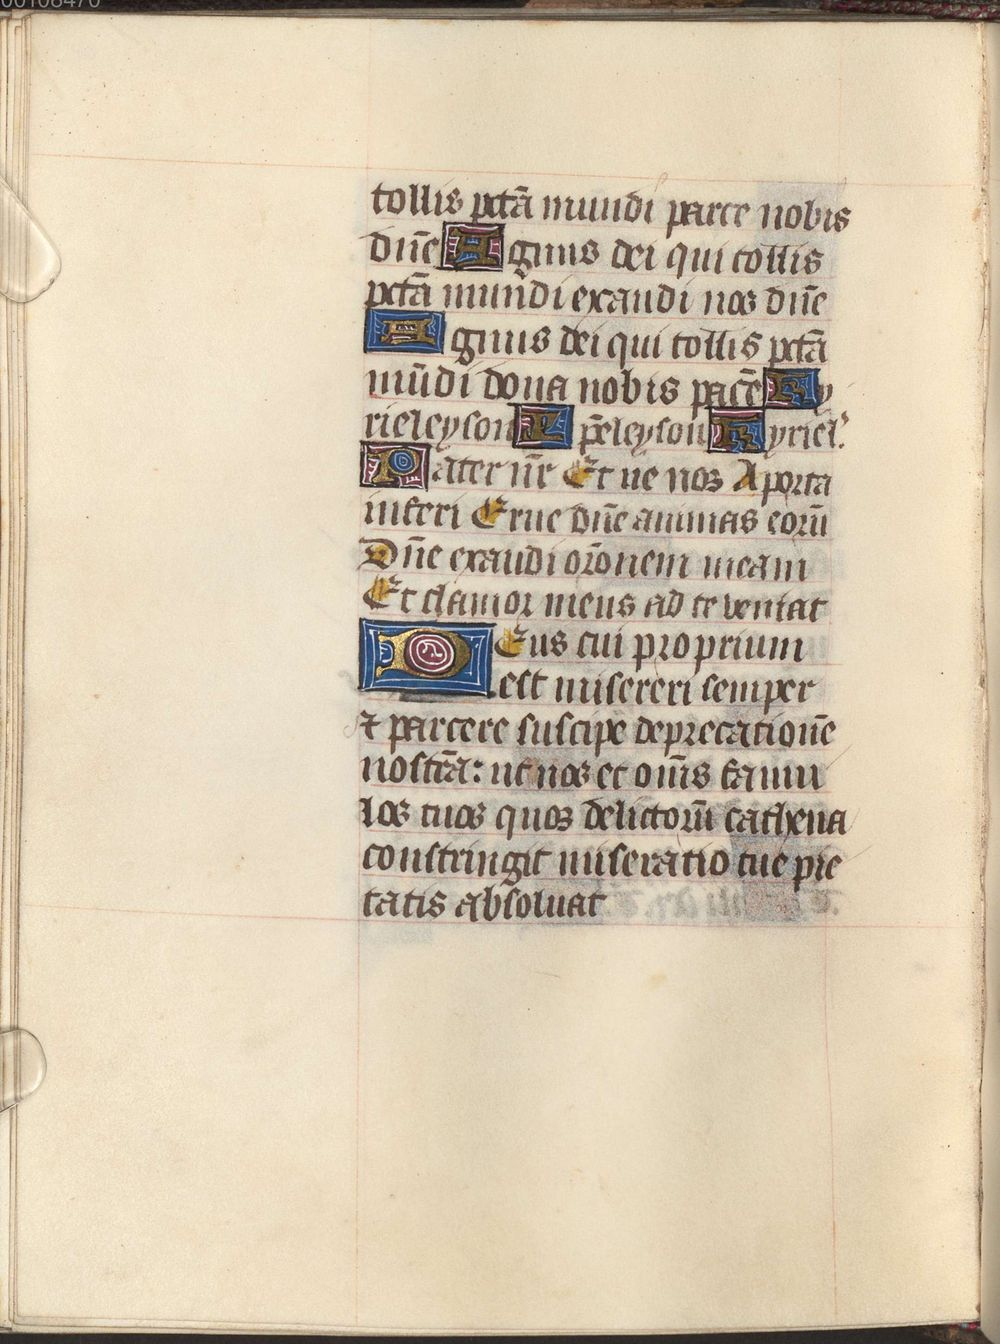 00108470
tollis pctā mundi parce nobis
dn̄e Agnus dei qui tollis
pctā mundi exaudi nos dn̄e
Agnus dei qui tollis pctā
mūdi dona nobis pacē Ky
rieleyson Xp̄eleyson Kyriel'.
Pater nr̄ Et ne nos A porta
inferi Erue dn̄e animas eorū
Dn̄e exaudi orōnem meam
Et clamor meus ad te veniat
Deus cui proprium
est misereri semper
⁊ parcere suscipe deprecationē
nostrā: ut nos et omīs famu
los tuos quos delictorū cathena
constringit miseratio tue pie
tatis absoluat